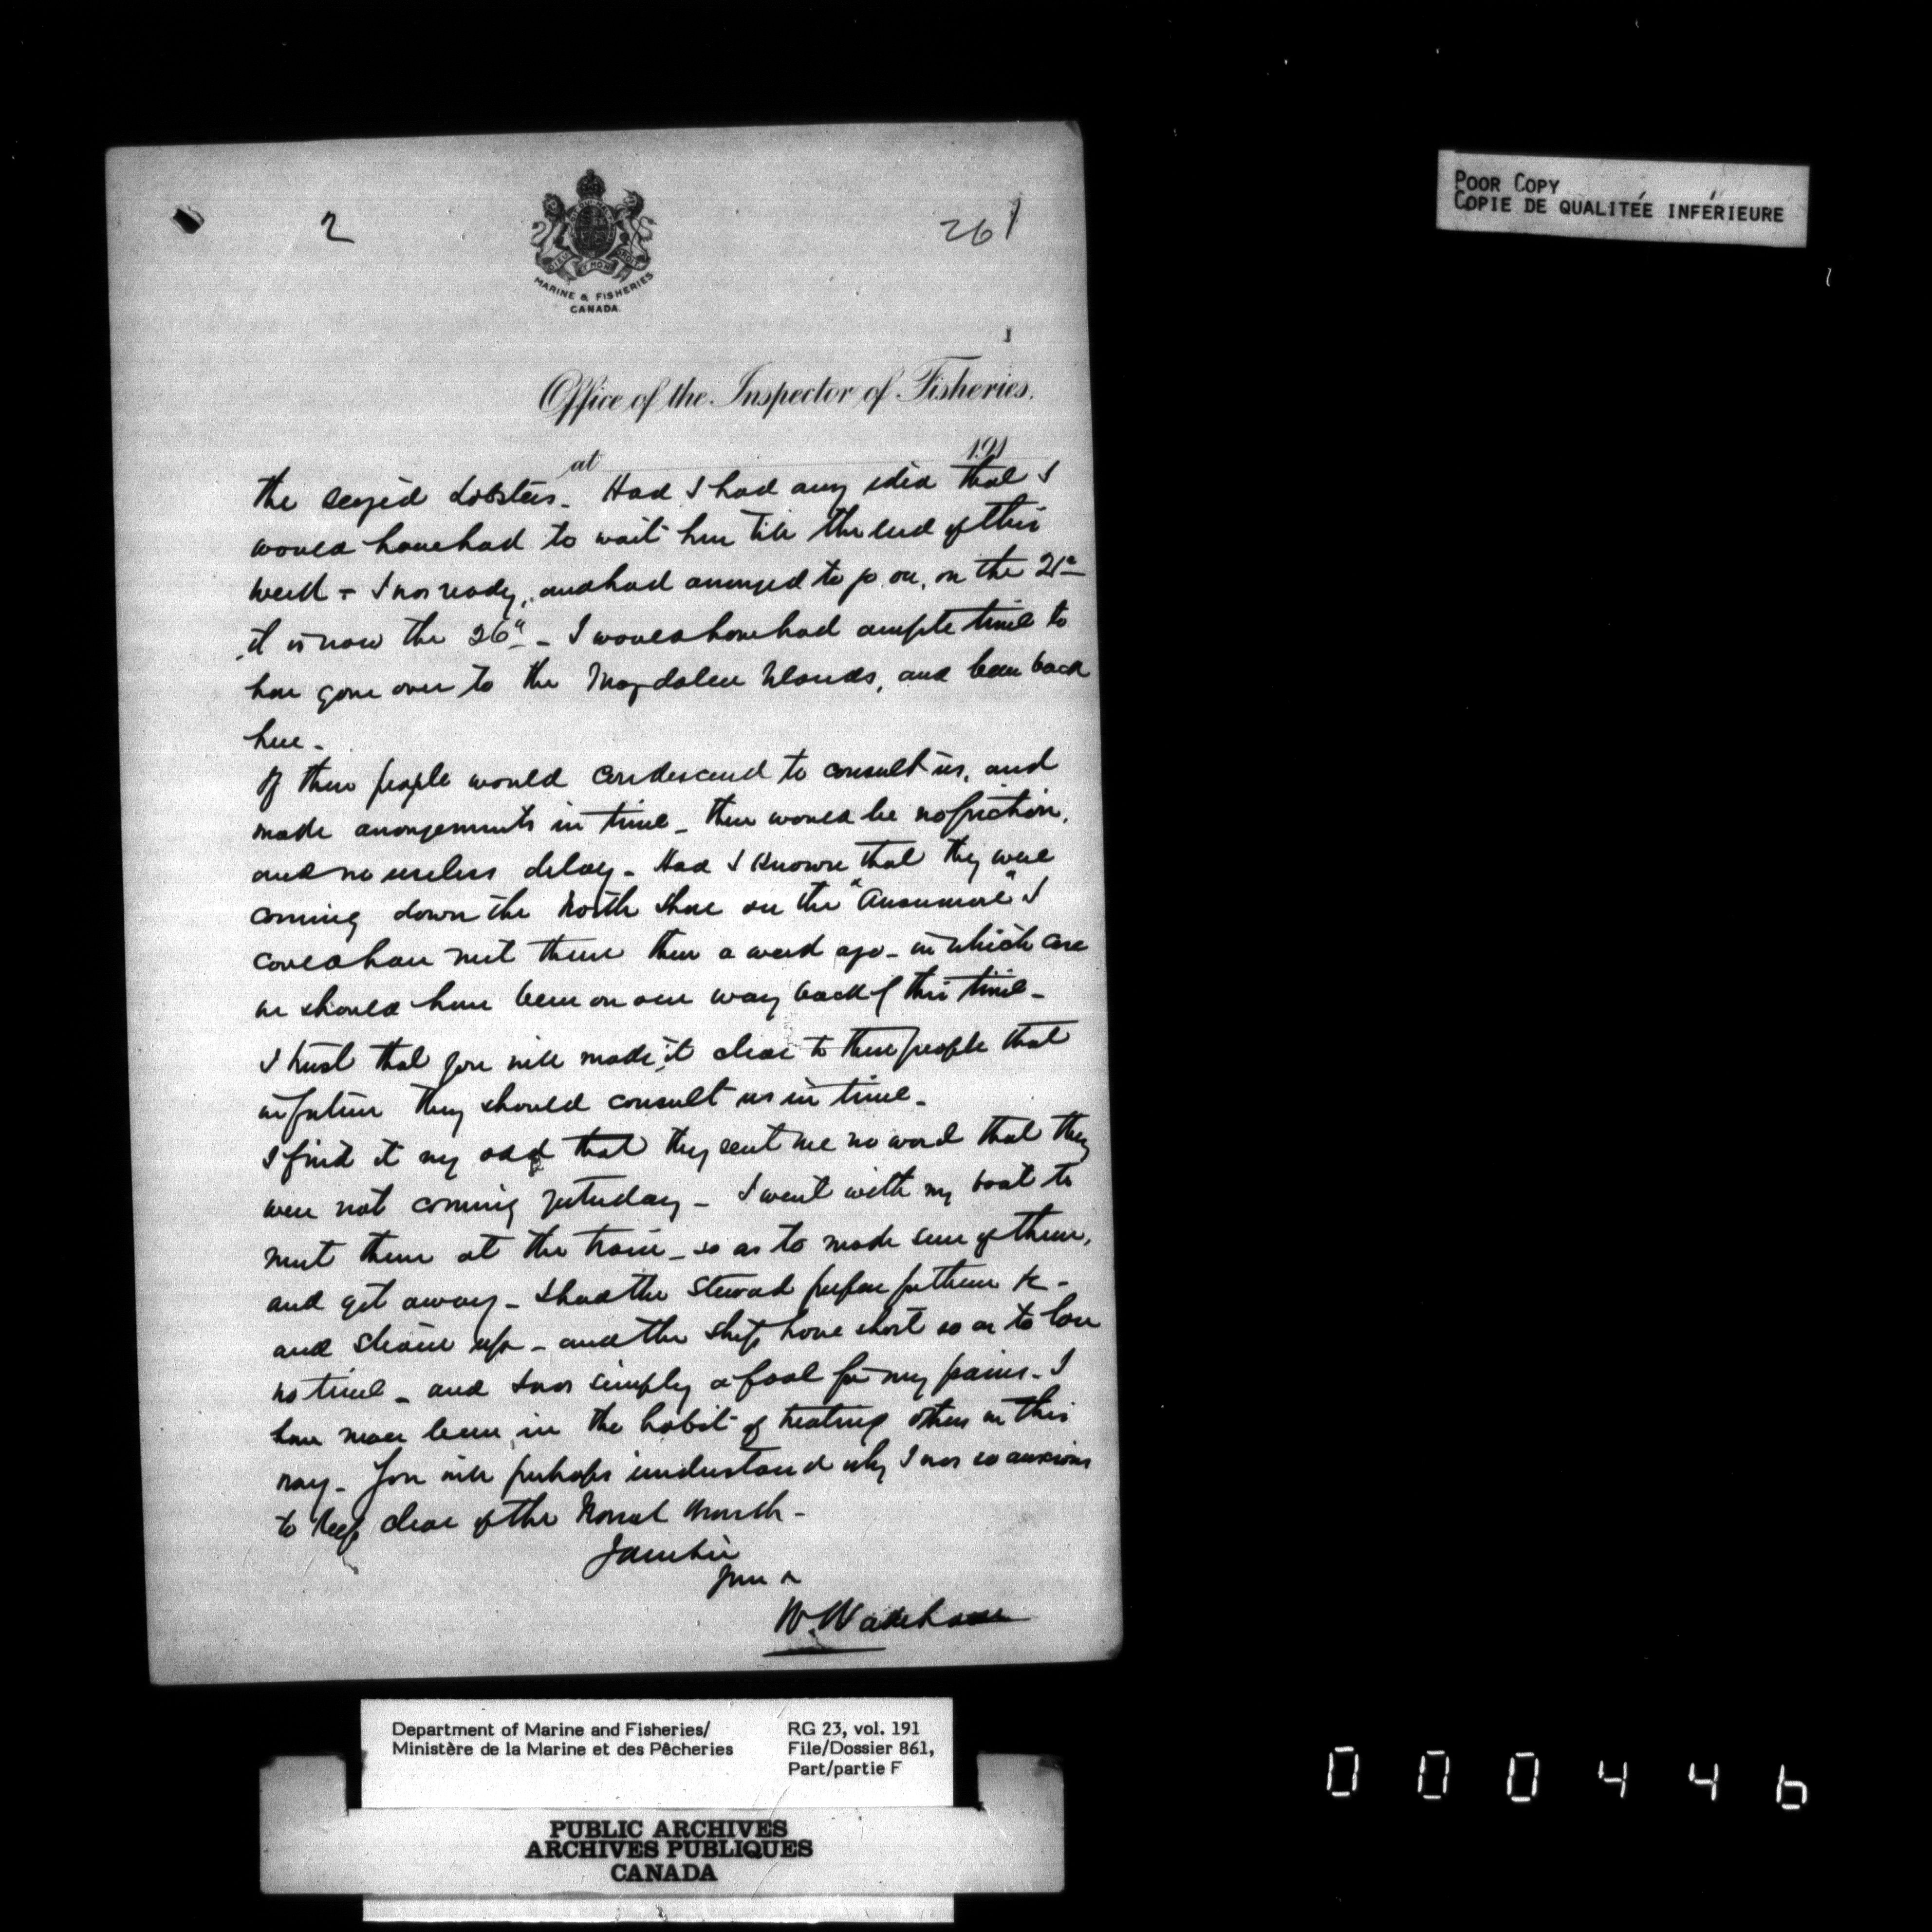 POOR COPY
COPIE DE QUALITÉE INFÉRIEURE
2
261
DIEU ET MON DROIT
MARINE & FISHERIES
CANADA
Office of the Inspector of Fisheries.
at 191
the seized Lobsters - Had I had any idea that I
would have had to wait here till the end of this
week - I was ready, and had arranged to go on, on the 21st
it is now the 26th - I would have had ample time to
have gone over to the Magdalen Islands, and been back
here -
If these people would condescend to consult us, and
make arrangements in time - there would be no friction,
and no useless delay - Had I known that they were
coming down the North Shore on the " " I
could have met them there a week ago - in which case
we should have been on our way back by this time -
I trust that you will make it clear to these people that
in future they should consult us in time -
I find it very odd that they sent me no word that they
were not coming yesterday - I went with my boat to
meet them at the train - so as to make sure of them,
and get away - I had the Steward prepare for them &c -
and steam up - and the ship hove short so as to lose
no time - and I was simply a fool for my pains - I
have never been in the habit of treating others in this
way - You will perhaps understand why I was so anxious
to keep clear of the
I am Sir
Yours
W. Wakeham
Department of Marine and Fisheries/
Ministère de la Marine et des Pêcheries
RG 23, vol. 191
File/Dossier 861,
Part/partie F
PUBLIC ARCHIVES
ARCHIVES PUBLIQUES
CANADA
000446